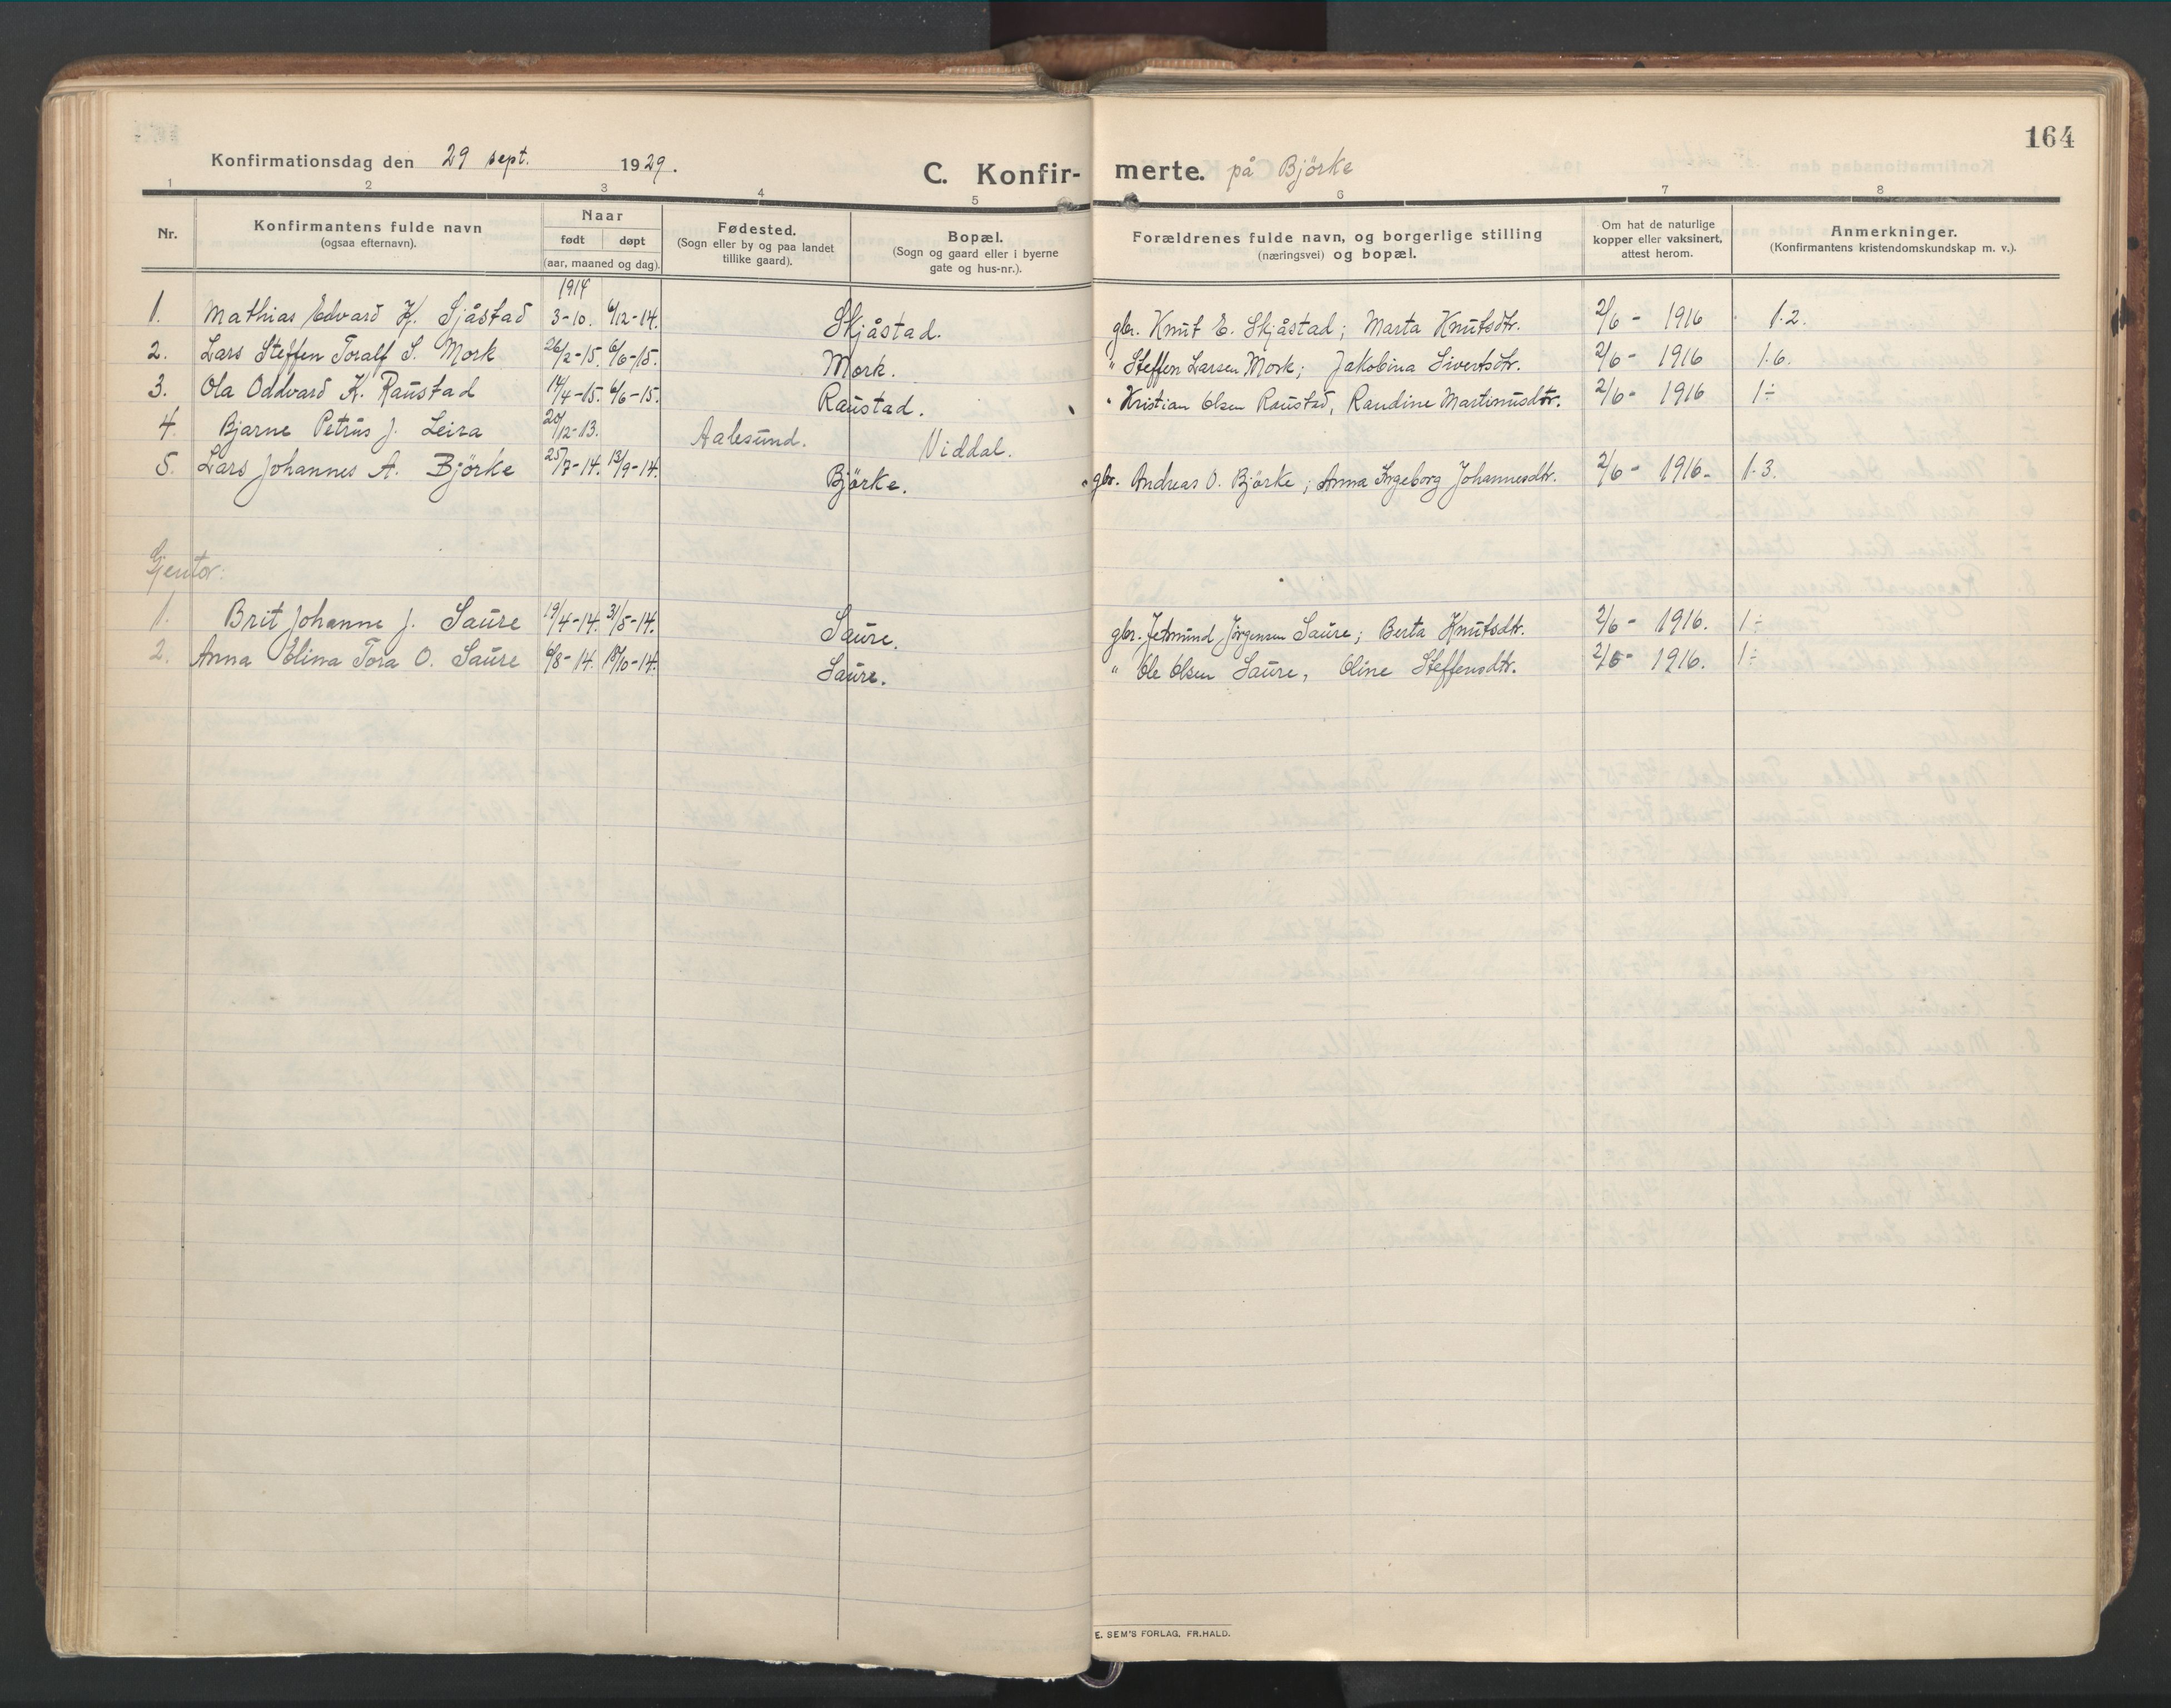 164
Konfirmationsdag den 29 sept. 1929.
C. Konfir- merte. på Björke
1 2 3 4 5 6 7 8
Nr.
Konfirmantens fulde navn
(ogsaa efternavn).
Naar
født døpt
(aar, maaned og dag).
Fødested.
(Sogn eller by og paa landet
tillike gaard).
Bopæl.
(Sogn og gaard eller i byerne
gate og hus-nr.).
Forældrenes fulde navn, og borgerlige stilling
(næringsvei) og bopæl.
Om hat de naturlige
kopper eller vaksinert,
attest herom.
Anmerkninger.
(Konfirmantens kristendomskundskap m. v.).
1914
1. Mathias Edvard K. Sjåstad 3-10. 6/12-14. Skjåstad. gbr. Knut E. Skjåstad; Marta Knutsdtr. 2/6- 1916 1.2.
2. Lars Steffen Toralf S. Mork 26/2-15. 6/6-15. Mork. " Steffen Larsen Mork; Jakobina Sivertsdtr. 2/6- 1916 1.6.
3. Ola Oddvard K. Raustad 14/4-15. 6/6-15. Raustad. " Kristian Olsen Raustad, Raudine Martinusdtr. 2/6- 1916 1÷
4 Bjarne Petrus J. Leira 20/12-13. Aalesund. Viddal.
5. Lars Johannes A. Björke 25/7-14. 13/9-14. Björke. gbr. Andreas O. Björke; Anna Ingeborg Johannesdtr. 2/6- 1916- 1.3.
Gjentor:
1. Brit Johanne J. Saure 19/4-14. 31/5-14. Saure. gbr. Jetmund Jørgensen Saure; Berta Knutsdtr. 2/6- 1916. 1÷
2. Anna Elina Tora O. Saure 6/8-14. 18/10-14. Saure. " Ole Olsen Saure, Oline Steffensdtr. 2/6- 1916. 1÷
E. SEM'S FORLAG, FR.HALD.